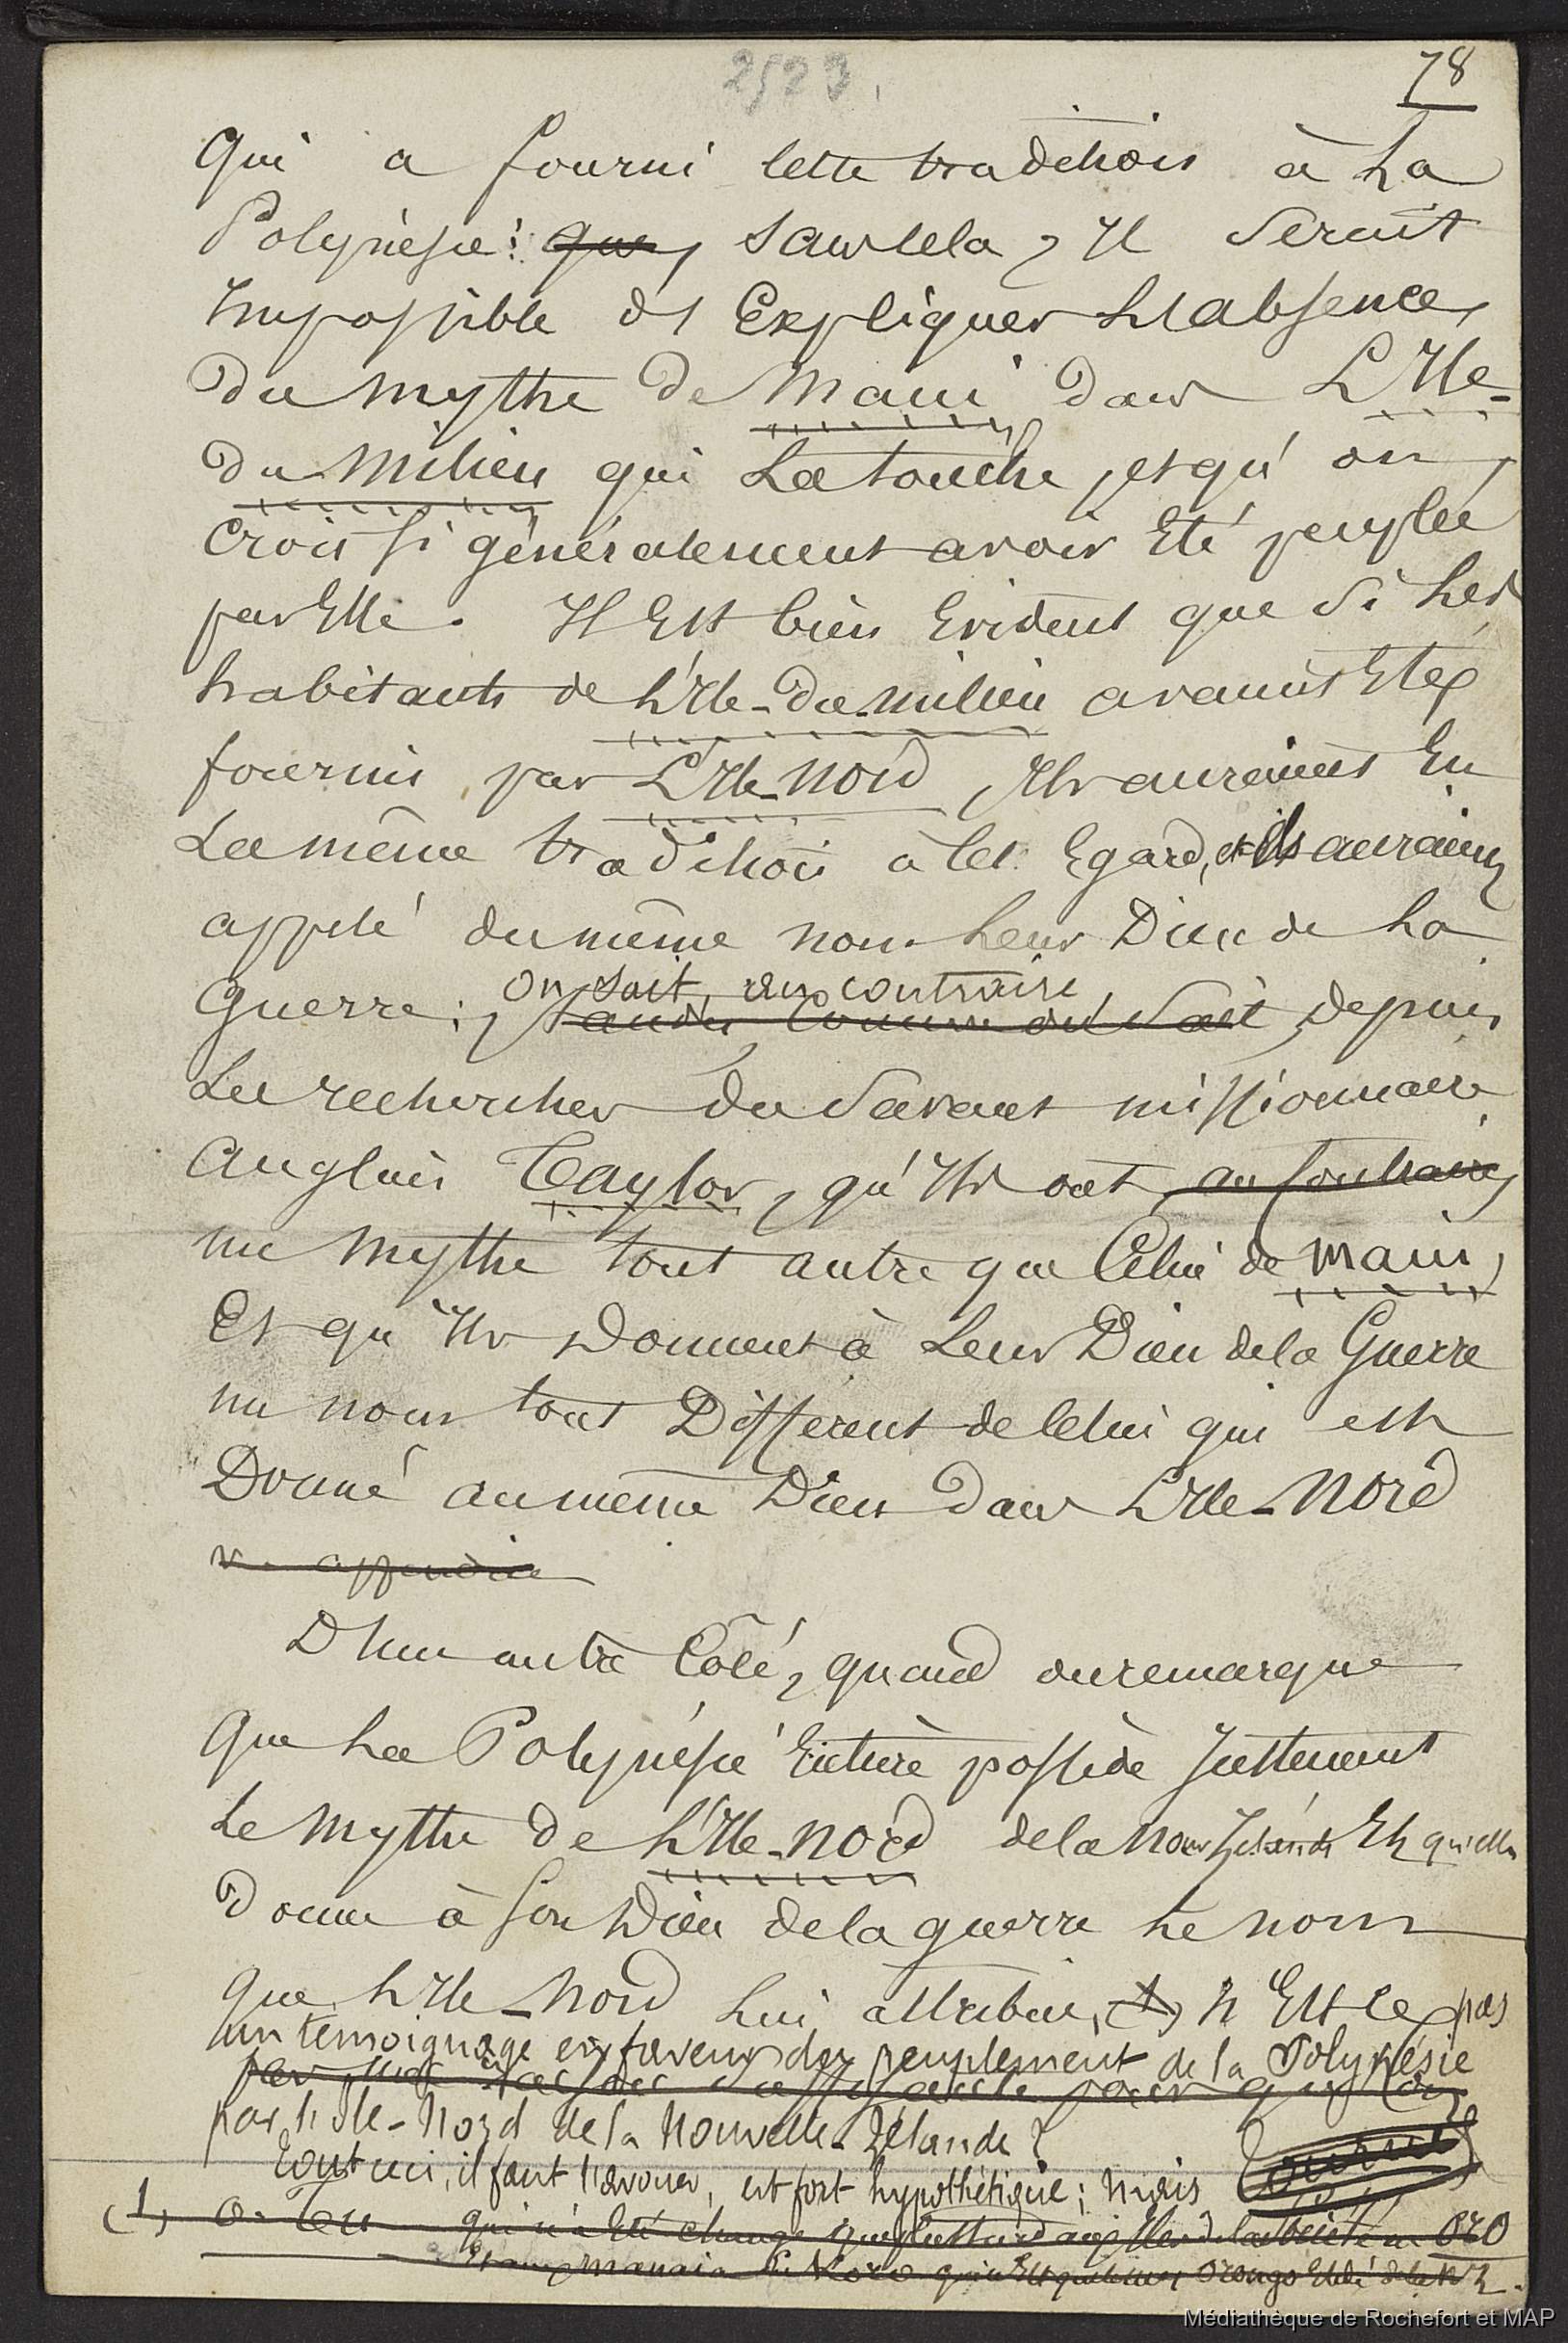 2523.
78
qui a fourni cette tradition à La
Polynésie: que, sans cela, Il serait
Impossible d'Expliquer L'absence,
Du mythe de Maui dans L'Ile-
du-Milieu qui La touche, et qu'on,
Croit si généralement avoir Eté peuplée
par Elle. Il Est bien Evident que si Les
habitants de L'Ile-du-milieu avaient Eté
fournis par L'Ile-Nord, Ils auraient Eu
La même tradition à cet Egard, et ils auraient
appelé du même nom Leur Dieu de La
Guerre; on sait, au contraire,
comme on sait, depuis
Les recherches du Savant missionnaire
Anglais Taylor, qu'Ils ont au contraire,
un mythe tout autre que Celui de Maui,
Et qu'Ils Donnent à Leur Dieu de la Guerre
un nom tout Différent de celui qui est
Donné au même Dieu dans L'Ile-Nord
v. appendice
D'un autre Côté, quand on remarque
que La Polynésie Entière possède Justement
Le mythe de L'Ile-Nord de la Nouv Zélande Et qu'elle
Donne à son Dieu de la guerre Le nom
que L'Ile-Nord Lui attribue, (1) n'Est ce pas
un témoignage en faveur du peuplement de la Polynésie
par l'Ile-Nord de la Nouvelle-Zélande?
Tout ceci, il faut l'avouer, est fort hypothétique; mais
(1) O-Tu qui n'a Eté changé que plus tard aux Iles de la Société en Oro